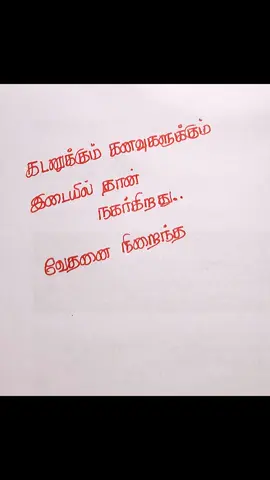 கடனுக்கும் கனவுகளுக்கும்
இடையில் தான்
நகர்கிறது..
வேதனை நிறைந்த